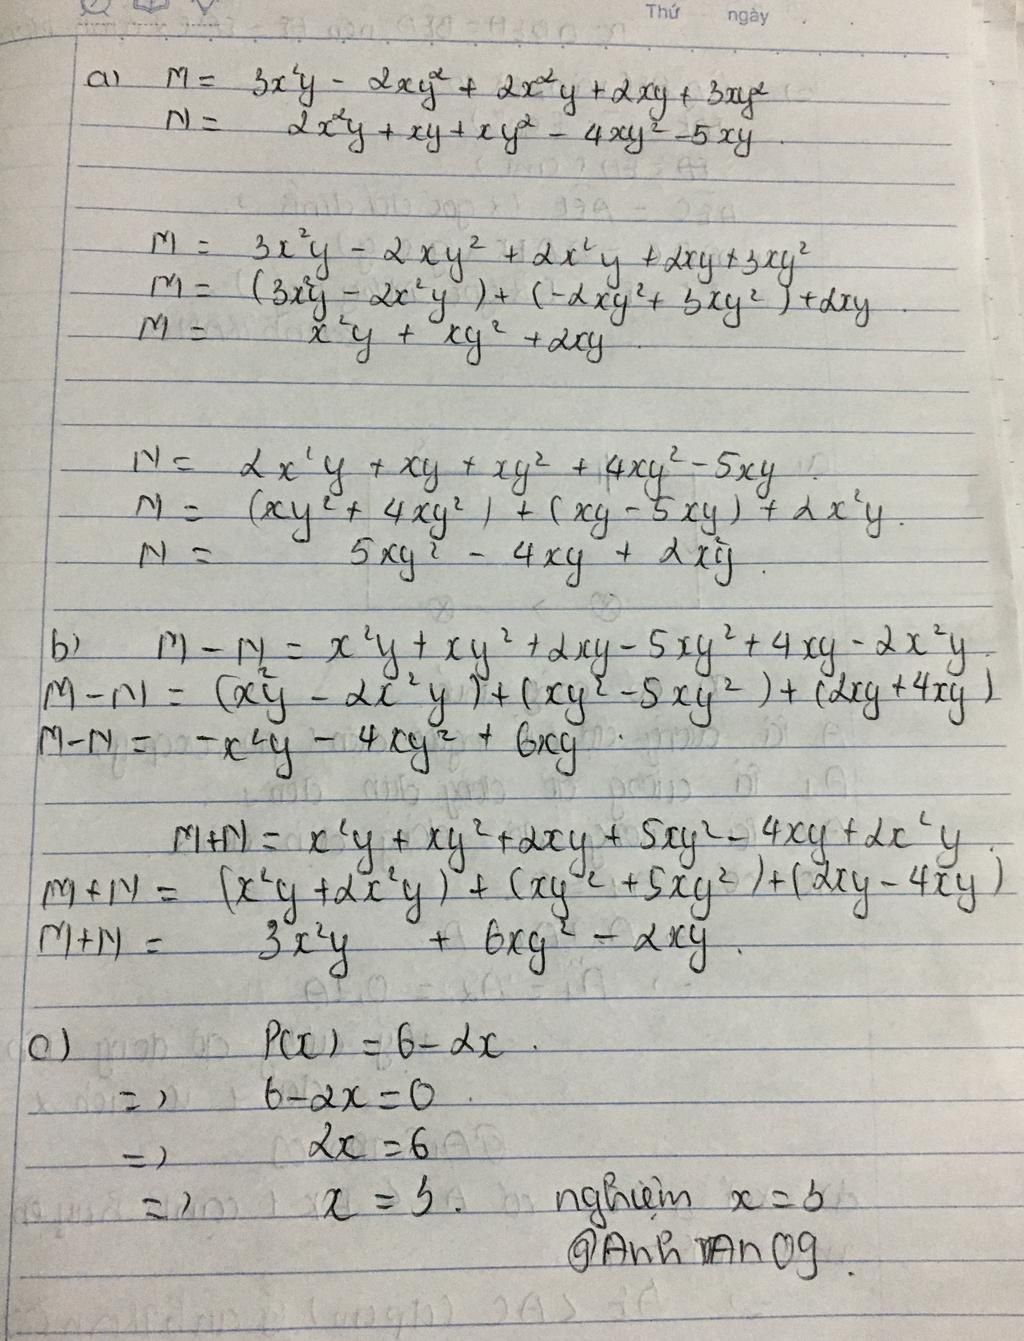 Thứ ngày
a) M = 3x²y - 2xy² + 2x²y + 2xy + 3xy²
N = 2x²y + xy + xy² - 4xy² - 5xy.
M = 3x²y - 2xy² + 2x²y + 2xy + 3xy²
M = (3x²y - 2x²y) + (-2xy² + 3xy²) + 2xy.
M = x²y + xy² + 2xy.
N = 2x²y + xy + xy² + 4xy² - 5xy.
N = (xy² + 4xy²) + (xy - 5xy) + 2x²y.
N = 5xy² - 4xy + 2x²y.
b) M - N = x²y + xy² + 2xy - 5xy² + 4xy - 2x²y.
M - N = (x²y - 2x²y) + (xy² - 5xy²) + (2xy + 4xy)
M - N = -x²y - 4xy² + 6xy.
M + N = x²y + xy² + 2xy + 5xy² - 4xy + 2x²y.
M + N = (x²y + 2x²y) + (xy² + 5xy²) + (2xy - 4xy)
M + N = 3x²y + 6xy² - 2xy.
c) P(x) = 6 - 2x.
=> 6 - 2x = 0.
=> 2x = 6
=> x = 3. nghiệm x = 3
@Anh VAn 09.